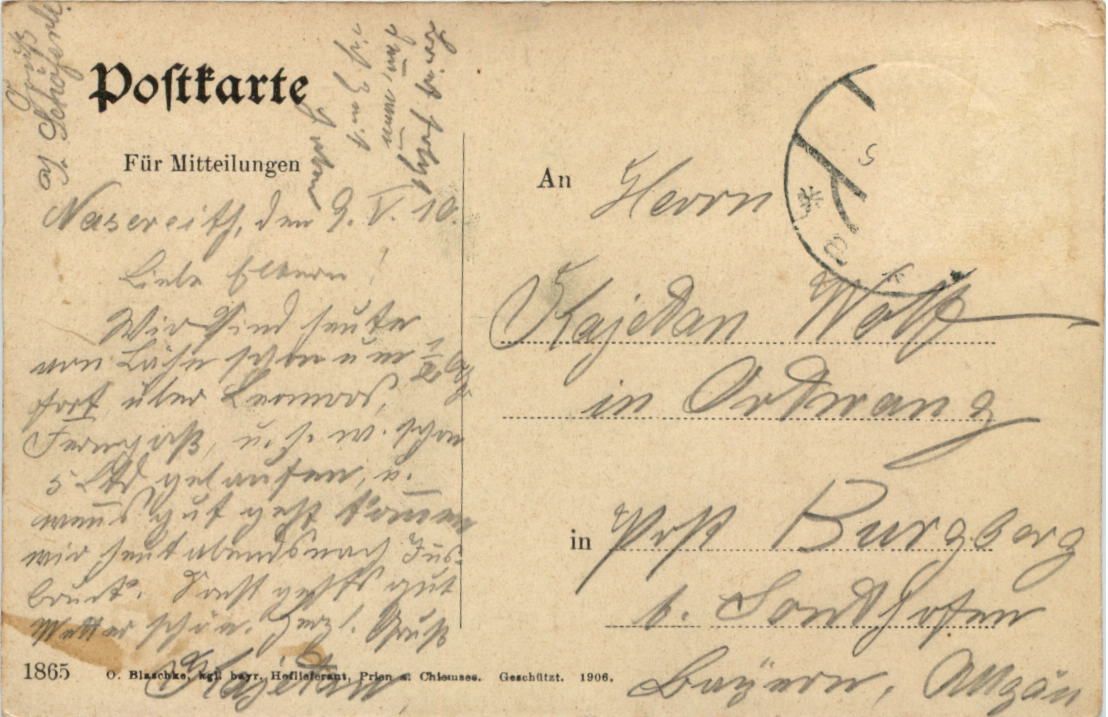 Postkarte
Für Mitteilungen
Gruß
J. Schöferle
Nasereith, den 9. V. 10.
Liebe Eltern!
Wir sind heute
von Lähn schon um 1/2
fort über Lermoos,
Fernpaß, u. s. w. schon
5 Std gelaufen, u.
wenns gut geht kommen
wir heut abends nach Ins-
bruck. Sonst gehts gut
Wetter schön. Herzl. Gruß
Kajetan
An
Herrn
Kajetan Wolf
in Ortwang
in Post Burgberg
b. Sonthofen
Bayern, Allgäu
1865
O. Blaschke, kgl. bayr. Hoflieferant, Prien a. Chiemsee. Geschützt. 1906.